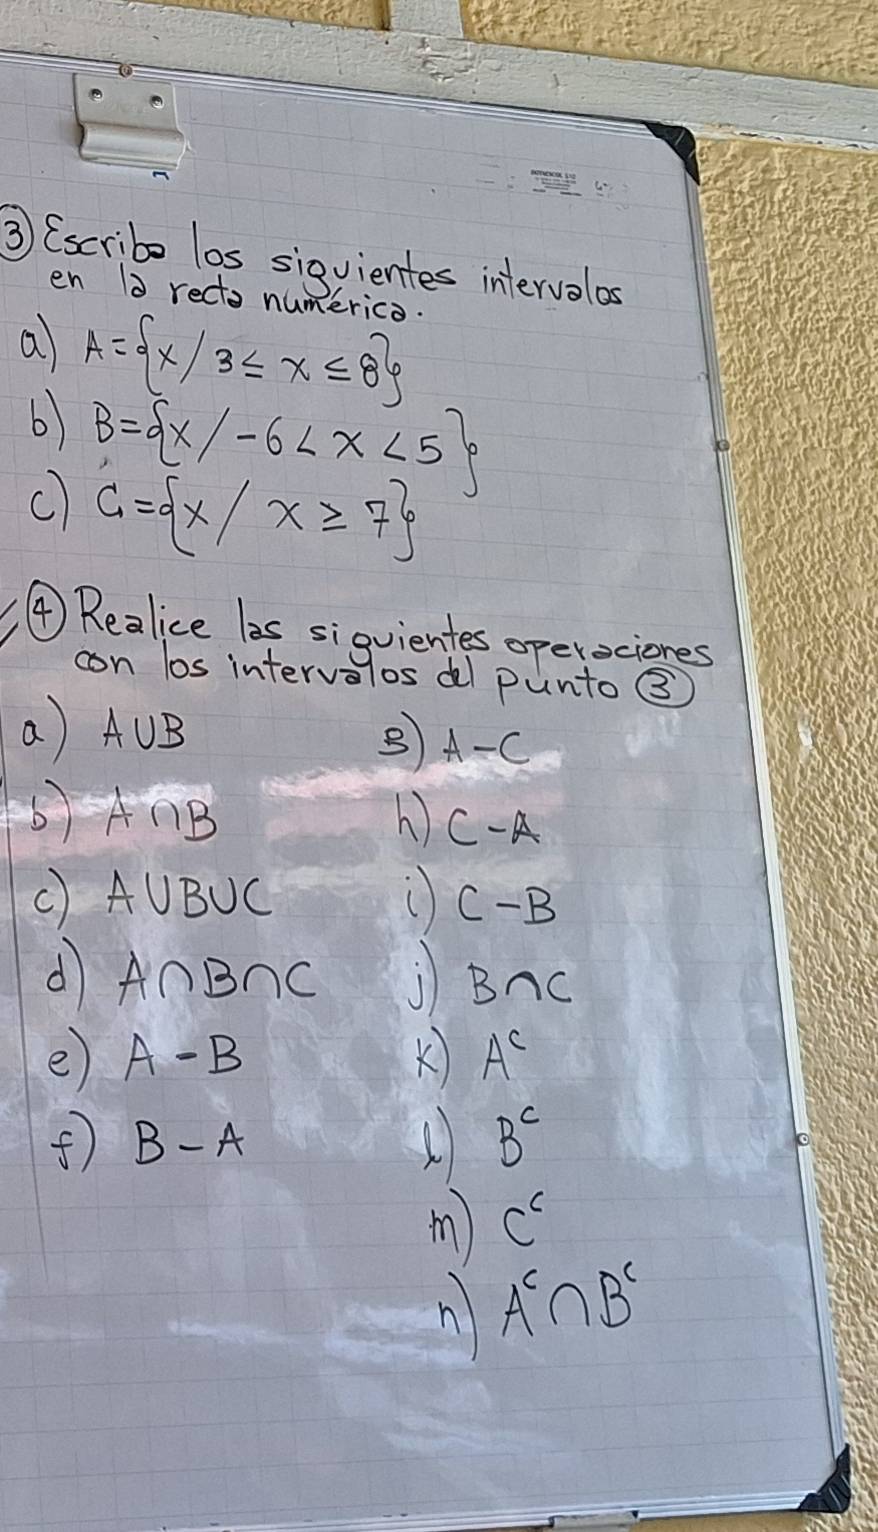 ③ Escriba los siguientes intervalos
en la recta numérica.
a) A={x/3≤x≤8}
b) B={x/-6<x<5}
c) C={x/x≥7}
④ Realice las siguientes operaciones
con los intervalos del punto ③
a) A∪B
b) A∩B
c) A∪B∪C
d) A∩B∩C
e) A-B
f) B-A
g) A-C
h) C-A
i) C-B
j) B∩C
k) Aᶜ
l) Bᶜ
m) Cᶜ
n) Aᶜ∩Bᶜ